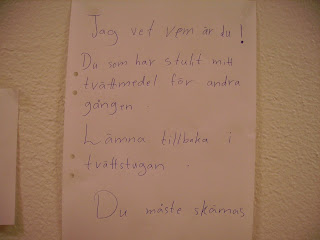 Jag vet vem är du!
Du som har stulit mitt
tvättmedel för andra
gången.
Lämna tillbaka i
tvättstugan.
Du måste skämas